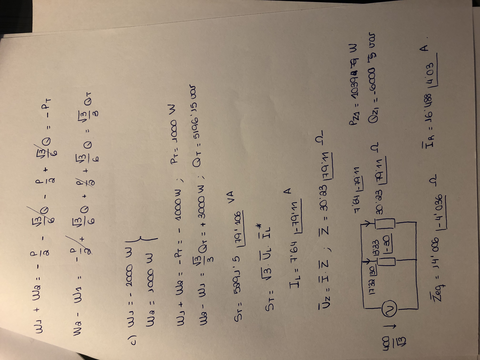 W1 + W2 = - P/2 - √3/6 Q - P/2 + √3/6 Q = - PT
W2 - W1 = - P/2 + √3/6 Q + P/2 + √3/6 Q = √3/3 QT
c) W1 = - 2000 W
W2 = 1000 W
W1 + W2 = - PT = - 1000 W ; PT = 1000 W
W2 - W1 = √3/3 QT = + 3000 W ; QT = 5196'15 var
ST = 5291'5 |79'106 VA
ST = √3 UL IL*
IL = 7'64 |-79'11 A
UZ = I Z ; Z = 30'23 |79'11 Ω
400/√3
17'32 |30
13'23 |-30
7'64 |-79'11
30'23 |79'11 Ω
PZ1 = 10392'79 W
QZ1 = -6000'3 var
Zeq = 14'006 |-4'036 Ω
IR = 16'488 |4'03 A.